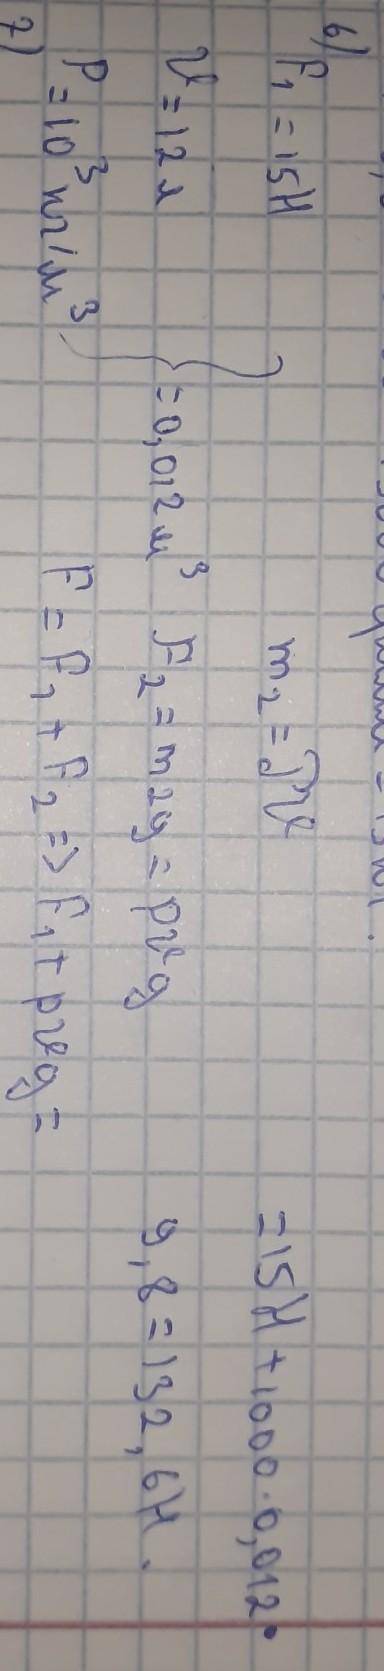 6) F₁ = 15Н
V = 12л = 0,012м³
ρ = 10³ кг/м³
m₂ = ρV
F₂ = m₂g = ρVg
F = F₁ + F₂ => F₁ + ρVg =
= 15Н + 1000 · 0,012 ·
9,8 = 132,6Н.
7)